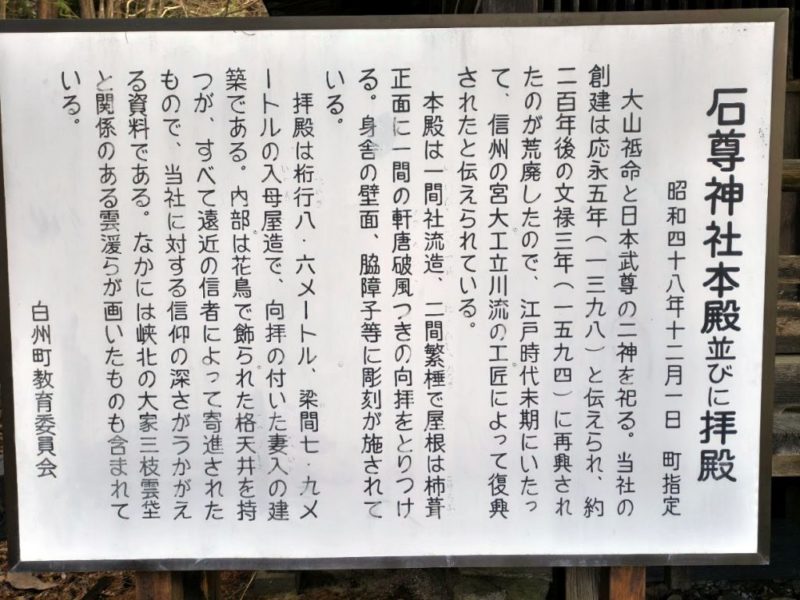 石尊神社本殿並びに拝殿
昭和四十八年十二月一日　町指定
大山祇命と日本武尊の二神を祀る。当社の
創建は応永五年（一三九八）と伝えられ、約
二百年後の文禄三年（一五九四）に再興され
たのが荒廃したので、江戸時代末期にいたっ
て、信州の宮大工立川流の工匠によって復興
されたと伝えられている。
本殿は一間社流造、二間繁棰で屋根は柿葺
正面に一間の軒唐破風つきの向拝をとりつけ
る。身舎の壁面、脇障子等に彫刻が施されて
いる。
拝殿は桁行八・六メートル、梁間七・九メ
ートルの入母屋造で、向拝の付いた妻入の建
築である。内部は花鳥で飾られた格天井を持
つが、すべて遠近の信者によって寄進された
もので、当社に対する信仰の深さがうかがえ
る資料である。なかには峡北の大家三枝雲岱
と関係のある雲湲らが画いたものも含まれて
いる。
白州町教育委員会